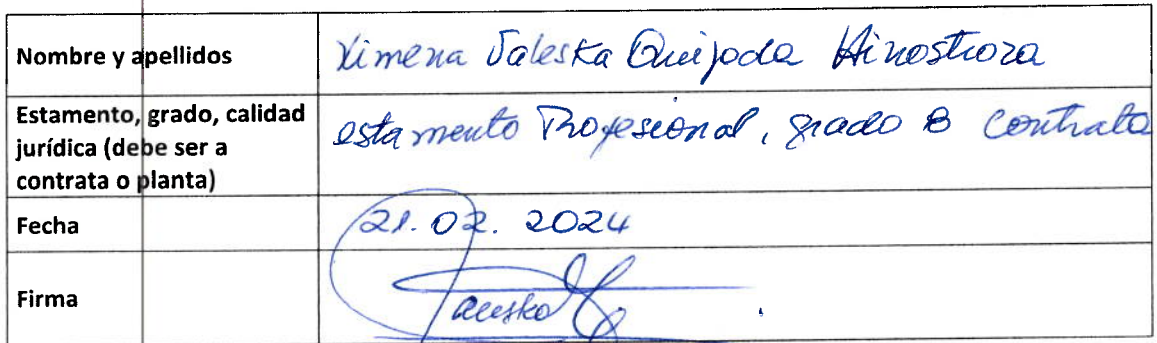 Nombre y apellidos Ximena Valeska Quijada Hinostroza
Estamento, grado, calidad jurídica (debe ser a contrata o planta) estamento Profesional, grado 8 contrata
Fecha 21.02.2024
Firma